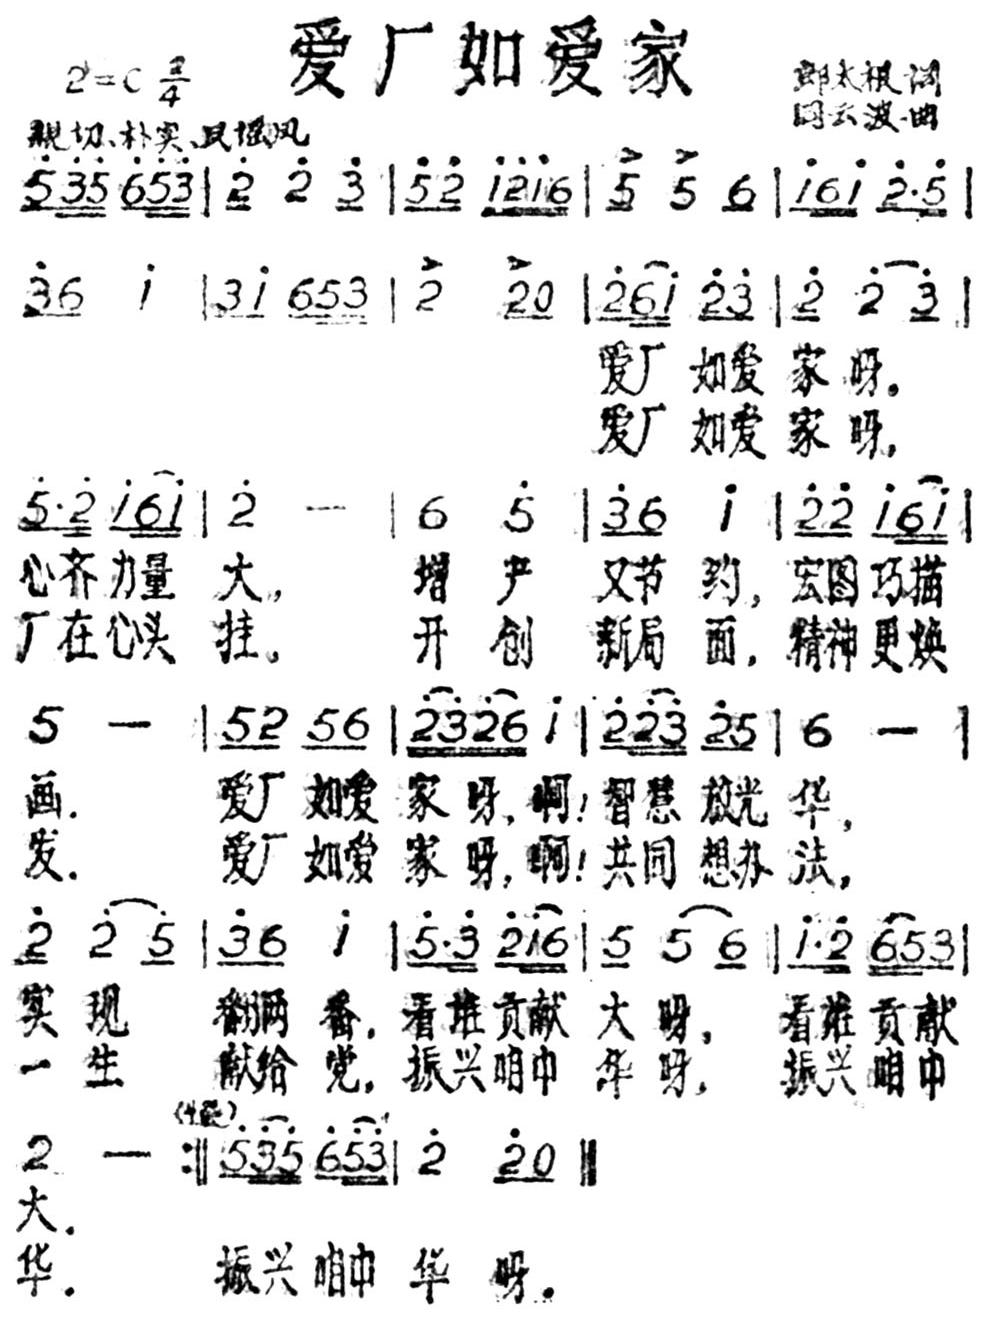 爱厂如爱家
2=C 2/4
郎太根 词
闵云波 曲
亲切、朴实、民谣风
5 3 5 6 5 3 | 2 2 3 | 5 2 1 2 1 6 | 5 5 6 | 1 6 1 2·5 |
3 6 1 | 3 1 6 5 3 | 2 2 0 | 2 6 1 2 3 | 2 2 3 |
爱厂 如爱 家 呀。
爱厂 如爱 家 呀,
5·2 1 6 1 | 2 — | 6 5 | 3 6 1 | 2 2 1 6 1 |
心齐力量 大, 增 产 又节 约, 宏图巧描
厂在心头 挂。 开 创 新局 面, 精神更焕
5 — | 5 2 5 6 | 2 3 2 6 1 | 2 2 3 2 5 | 6 — |
画. 爱厂 如爱 家 呀, 啊! 智慧 放光 华,
发. 爱厂 如爱 家 呀, 啊! 共同 想办 法,
2 2 5 | 3 6 1 | 5·3 2 1 6 | 5 5 6 | 1·2 6 5 3 |
实 现 翻两 番, 看谁贡献 大 呀, 看谁贡献
一 生 献给 党, 振兴咱中 华 呀, 振兴咱中
2 — :|| 5 3 5 6 5 3 | 2 2 0 ||
大.
华. 振兴 咱中 华 呀.